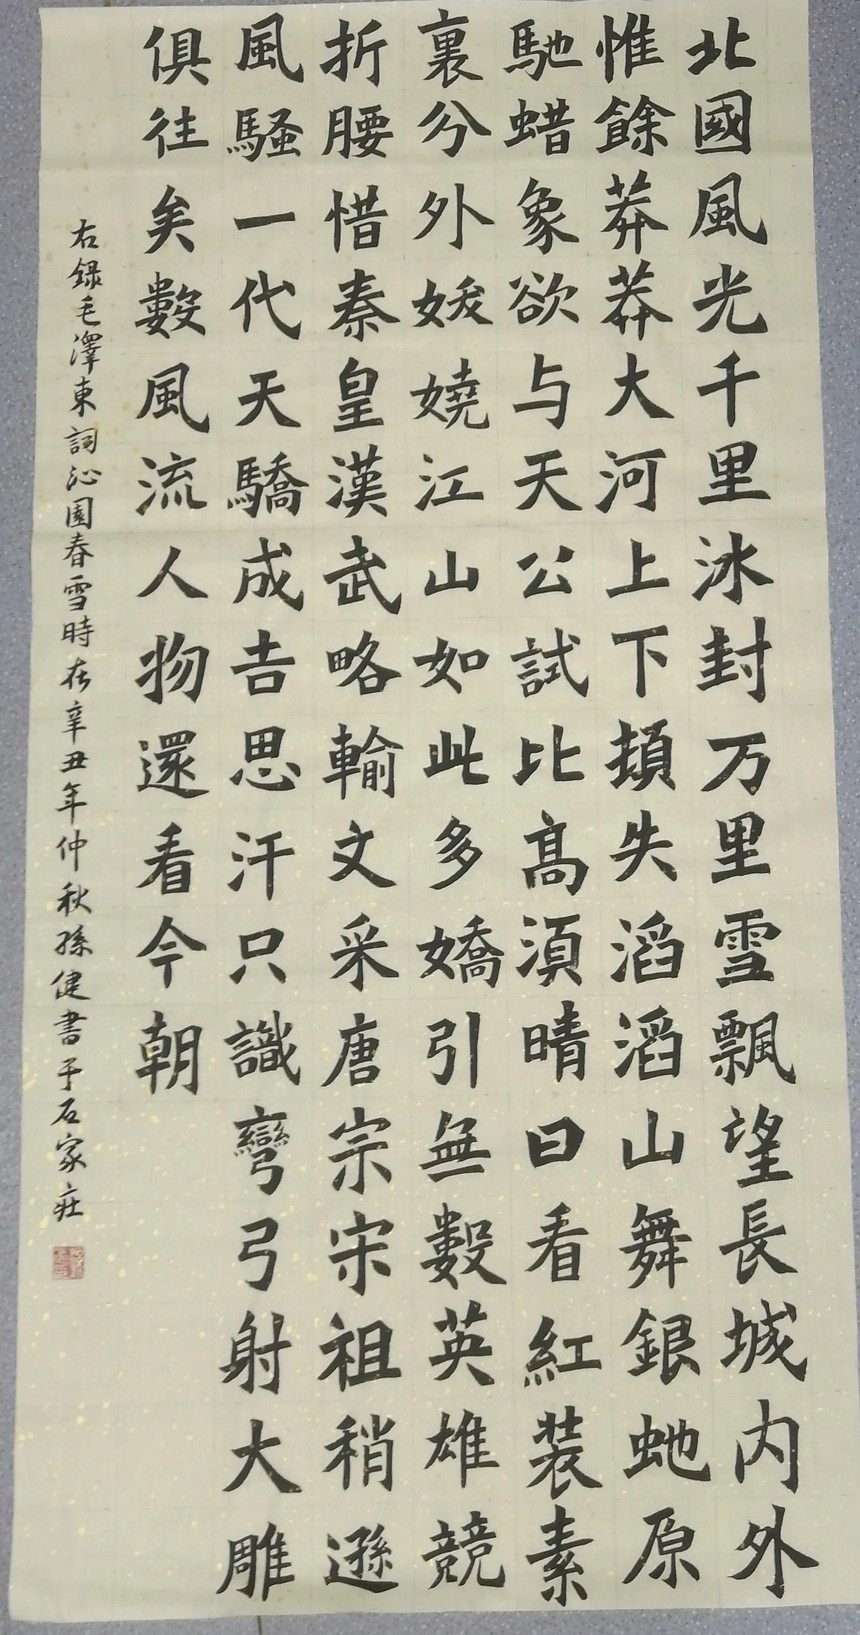 北國風光千里冰封万里雪飄望長城内外
惟餘莽莽大河上下頓失滔滔山舞銀虵原
馳蜡象欲与天公試比髙須晴日看紅装素
裏分外妖嬈江山如此多嬌引無數英雄競
折腰惜秦皇漢武略輸文采唐宗宋祖稍遜
風騷一代天驕成吉思汗只識彎弓射大雕
俱往矣數風流人物還看今朝
右録毛澤東詞沁園春雪時在辛丑年仲秋孫健書于石家莊